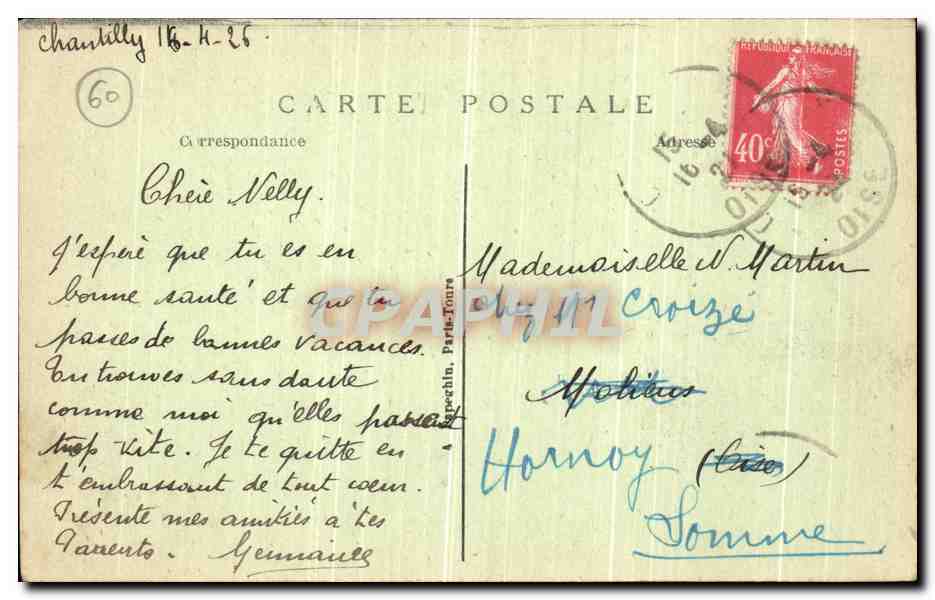 Chantilly 16-4-26.
60
CARTE POSTALE
Correspondance
Adresse
REPUBLIQUE FRANÇAISE
40c
POSTES
Chère Nelly.
J'espère que tu es en
bonne santé et que tu
passes de bonnes vacances.
Tu trouves sans doute
comme moi qu'elles passent
trop vite. Je te quitte en
t'embrassant de tout coeur.
Présente mes amitiés à tes
Parents. Germaine
Papeghin, Paris-Tours
Mademoiselle N. Martin
chez M Croizé
Moliens
Hornoy (Oise)
Somme
CPAPHIL
OISE